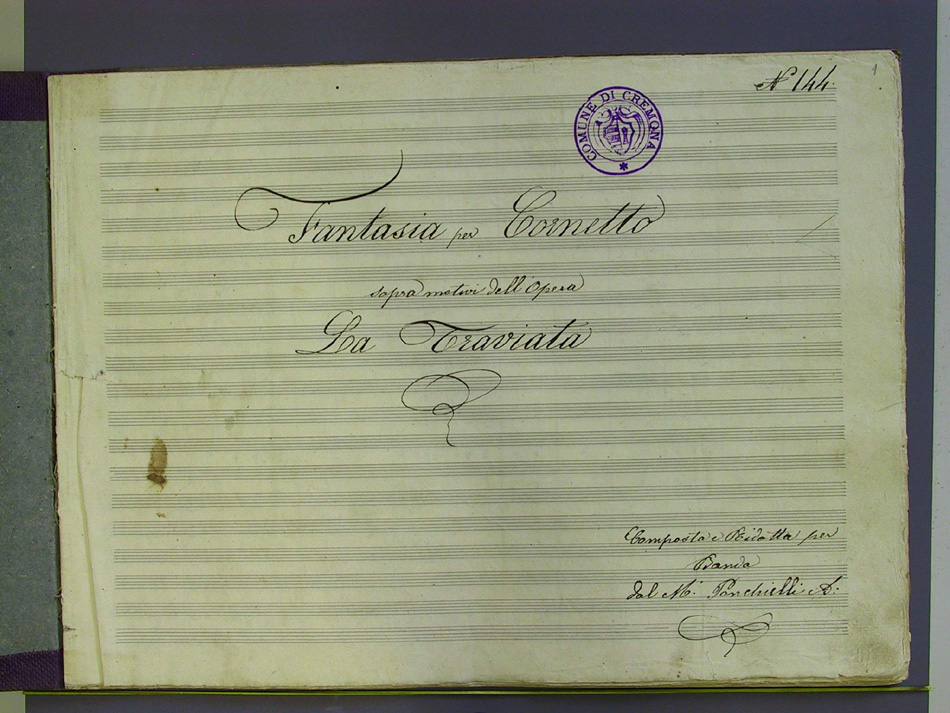 1
N° 144.
COMUNE DI CREMONA
Fantasia per Cornetto
sopra motivi dell'Opera
La Traviata
Composta e Ridotta per
Banda
dal M.° Ponchielli A.